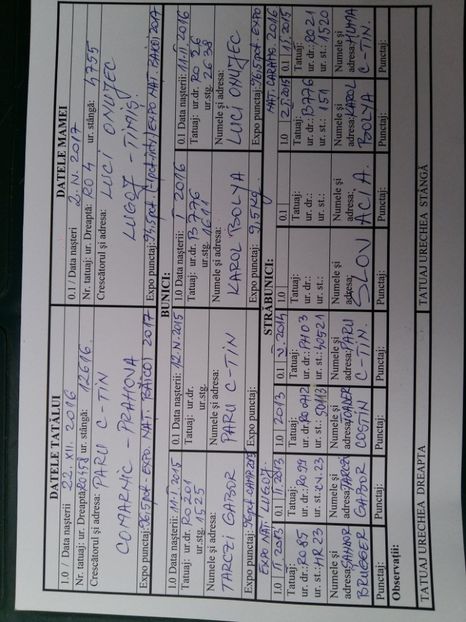 DATELE TATALUI
1.0 / Data nașterii 22. XII. 2016
Nr. tatuaj: ur. Dreaptă: RO158 ur. stângă: 12616
Crescătorul și adresa: PARU C-TIN
COMARNIC - PRAHOVA
Expo punctaj: 96.5pct - EXPO. NAT. BĂICOI 2017
DATELE MAMEI
0.1 / Data nașteri 2. IV. 2017
Nr. tatuaj: ur. Dreaptă: RO 4 ur. stângă: 4755
Crescătorul și adresa: LUCI ONUȚEC
LUGOJ - TIMIȘ!
Expo punctaj: EXPO NAT. BĂICOI 2017
BUNICI:
1.0 Data nașterii: 11. I 2015
Tatuaj: ur.dr: RO 201
ur.stg. 1525
Numele și adresa:
TARCZI GABOR
Expo punctaj:
EXPO NAT. LUGOJ
0.1 Data nașterii: 12. IV. 2015
Tatuaj: ur.dr.
ur.stg.
Numele și adresa:
PARU C-TIN
Expo punctaj:
1.0 Data nașterii: I 2016
Tatuaj: ur.dr. B776
ur.stg. 1611
Numele și adresa:
KAROL BOLYA
Expo punctaj: 9,5Kg.
0.1 Data nașterii: 11. II. 2016
Tatuaj: ur.dr: RO. 26
ur.stg. 2638
Numele și adresa:
LUCI ONUȚEC
Expo punctaj: 96,5pct. EXPO
NAT. CARANS. 2016
STRĂBUNICI:
1.0 II. 2013
Tatuaj:
ur. dr.: RO 85
ur. st.: HR23
Numele și
adresa: SANDOR
BRUGGER
Punctaj:
0.1 II. 2013
Tatuaj:
ur. dr.: RO 99
ur. st.: CN.23
Numele și
adresa: TARCZI
GABOR
Punctaj:
1.0 2013
Tatuaj:
ur. dr.:
ur. st.: 5D113
Numele și
adresa:
COSTIN
Punctaj:
0.1 V. 2014
Tatuaj:
ur. dr.: PA103
ur. st.: 40521
Numele și
adresa: PARU
C-TIN.
Punctaj:
1.0
Tatuaj:
ur. dr.:
ur. st.:
Numele și
adresa:
SLOV
Punctaj:
0.1
Tatuaj:
ur. dr.:
ur. st.:
Numele și
adresa:
ACIA.
Punctaj:
1.0 2. I. 2015
Tatuaj:
ur. dr.: B776
ur. st.: 151
Numele și
adresa: KAROL
BOLYA
Punctaj:
0.1 1. I. 2015
Tatuaj:
ur. dr.: RO21
ur. st.: 1520
Numele și
adresa: HUMA
C-TIN.
Punctaj:
Observații:
TATUAJ URECHEA DREAPTA
TATUAJ URECHEA STÂNGĂ